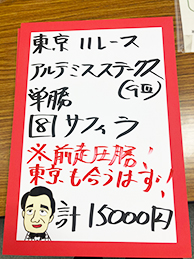 東京11レース
アルテミスステークス
(GⅢ)
単勝
8 サフィラ
※前走圧勝!
東京も合うはず!
計15000円